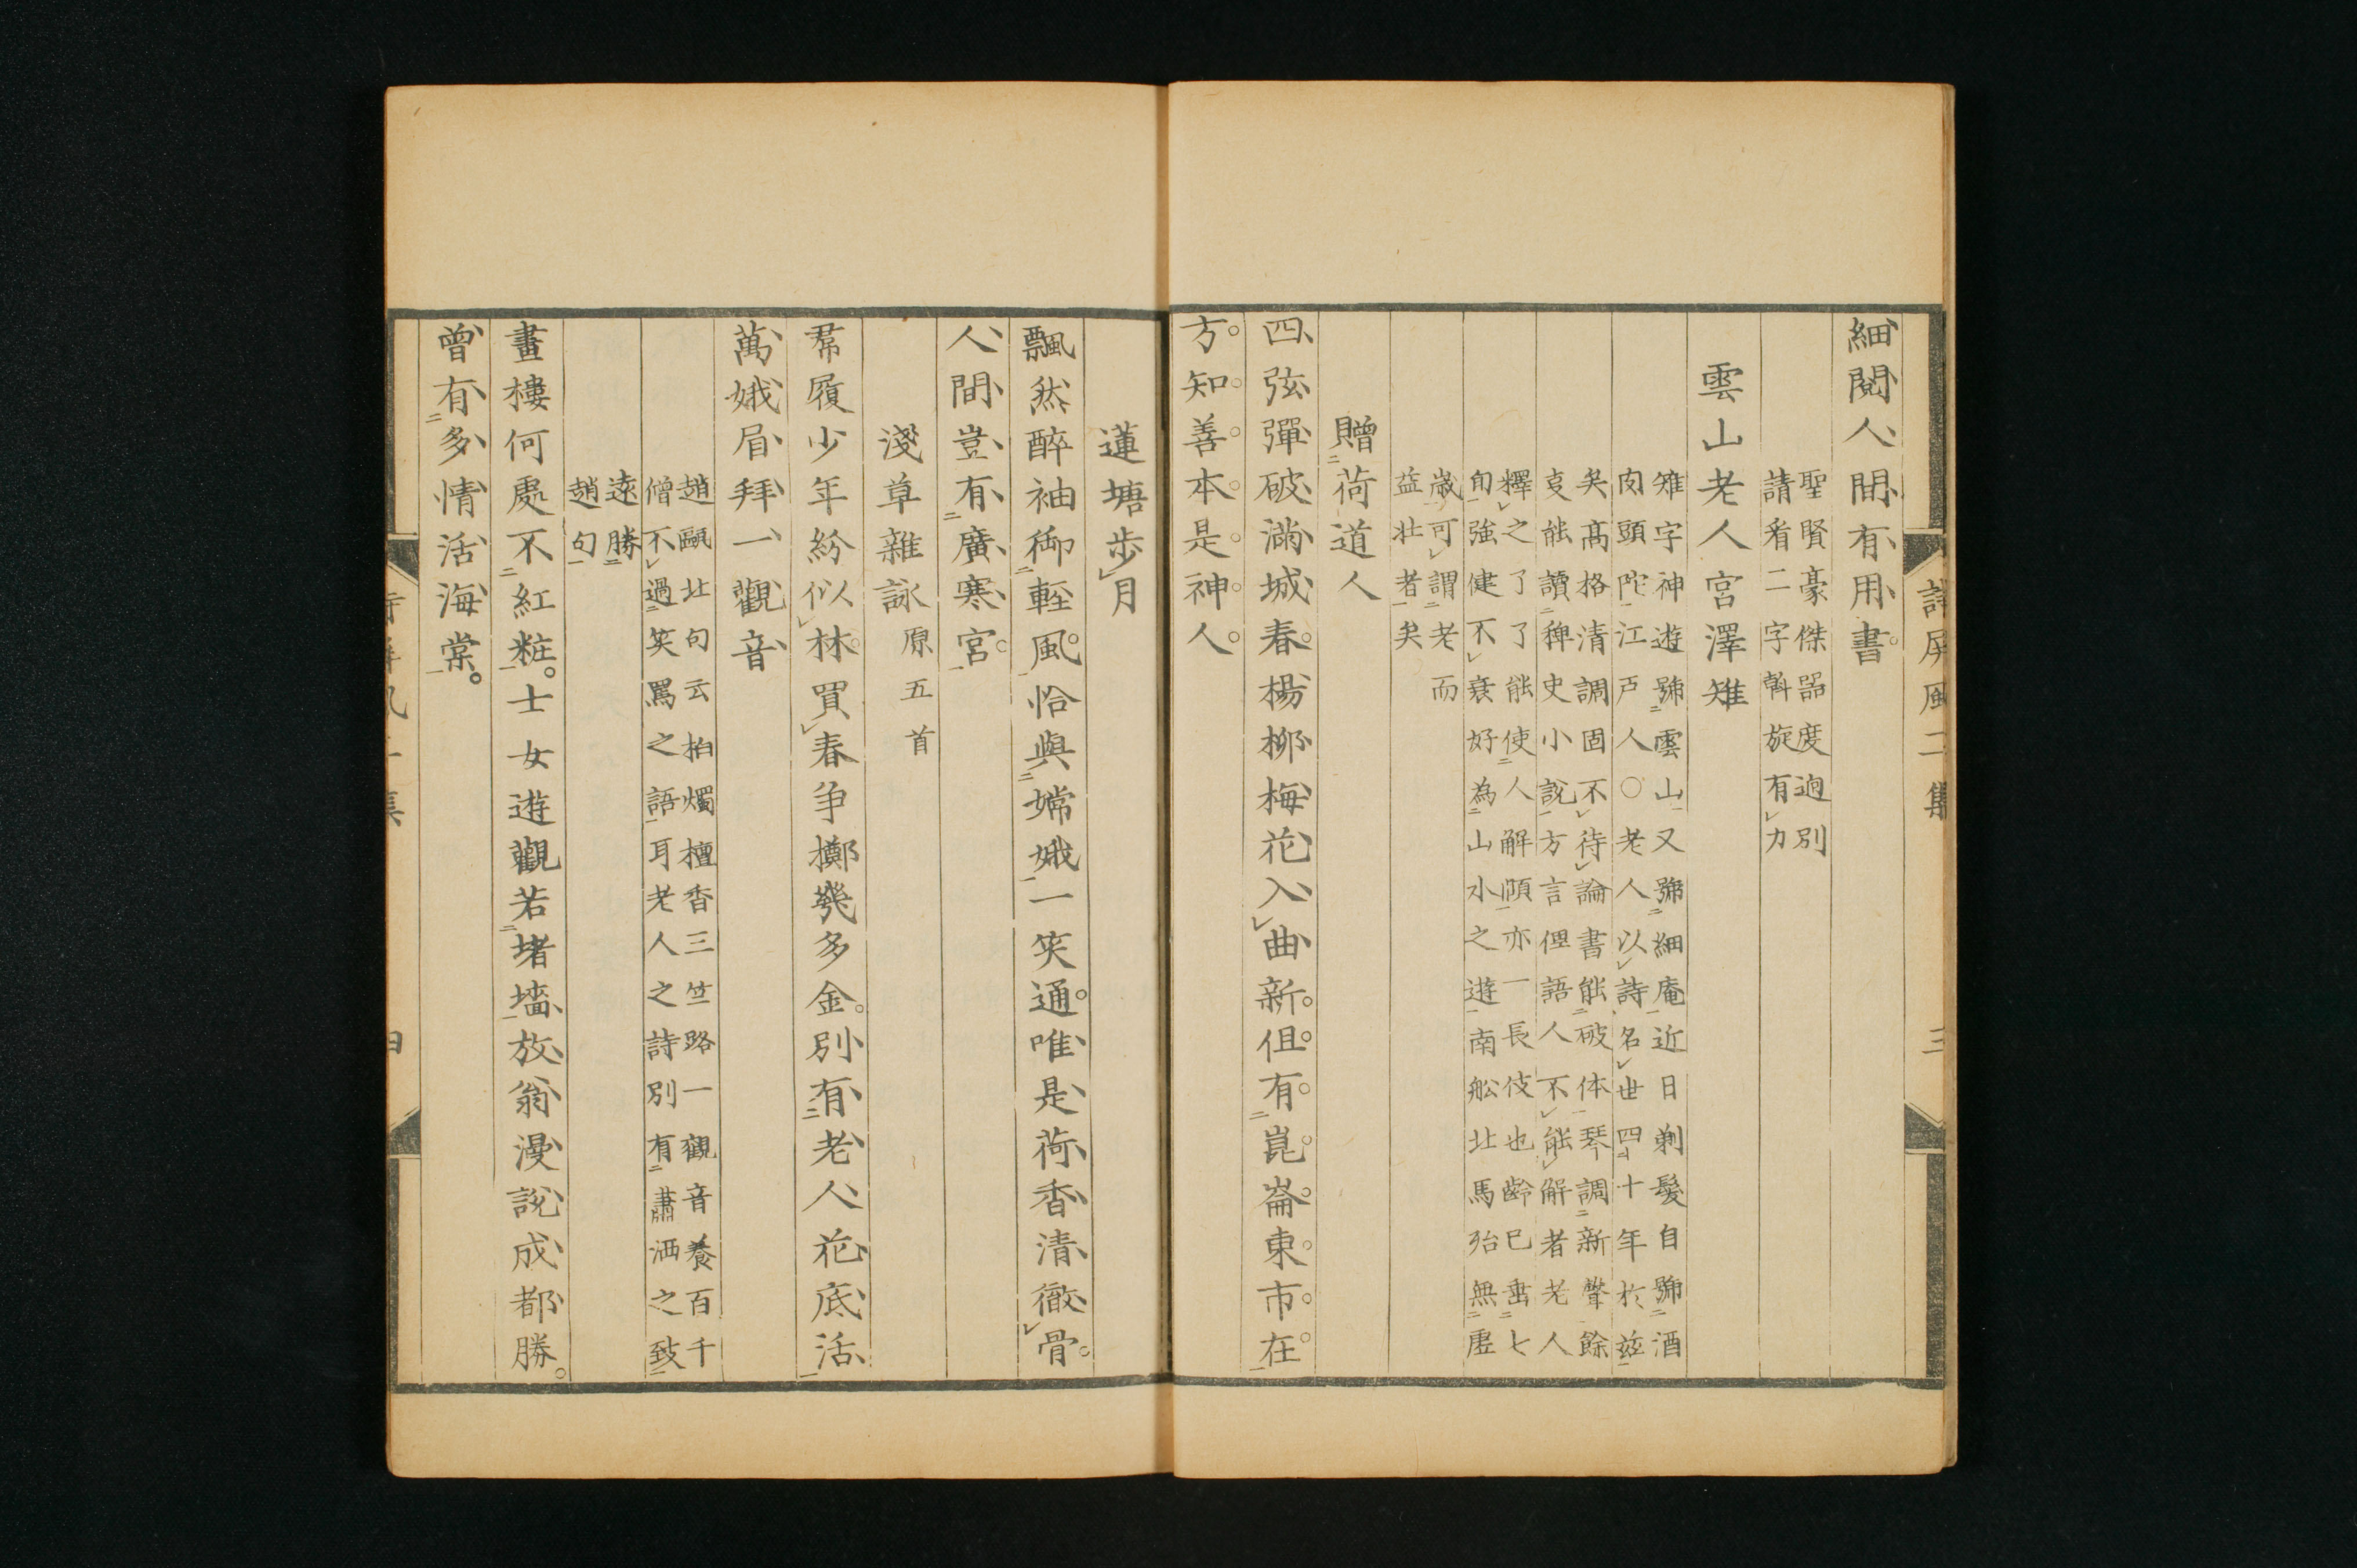 細閱人間有用書
聖賢豪傑器度逈別
請看二字斡旋有力
雲山老人宮澤雉
雉字神遊號雲山又號細庵近日剃髮自號酒
肉頭陀江戶人○老人以詩名世四十年於茲
矣高格清調固不待論書能破体琴調新聲餘
爰能讀稗史小說方言俚語人不能解者老人
釋之了了能使人解頤亦一長伎也齡已垂七
旬強健不衰好為山水之遊南舩北馬殆無虛
歲可謂老而
益壯者矣
贈荷道人
四弦彈破滿城春楊柳梅花入曲新但有崑崙東市在
方知善本是神人
蓮塘步月
飄然醉袖御輕風恰與嫦娥一笑通唯是荷香清徹骨
人間豈有廣寒宮
淺草雜詠 原五首
帬履少年紛似林買春爭擲幾多金別有老人花底活
萬娥眉拜一觀音
趙甌北句云柏燭檀香三竺路一觀音養百千
僧不過笑罵之語耳老人之詩別有蕭洒之致
遠勝
趙句
畫樓何處不紅粧士女遊觀若堵墻放翁漫說成都勝
曾有多情活海棠
詩屏風二集
三